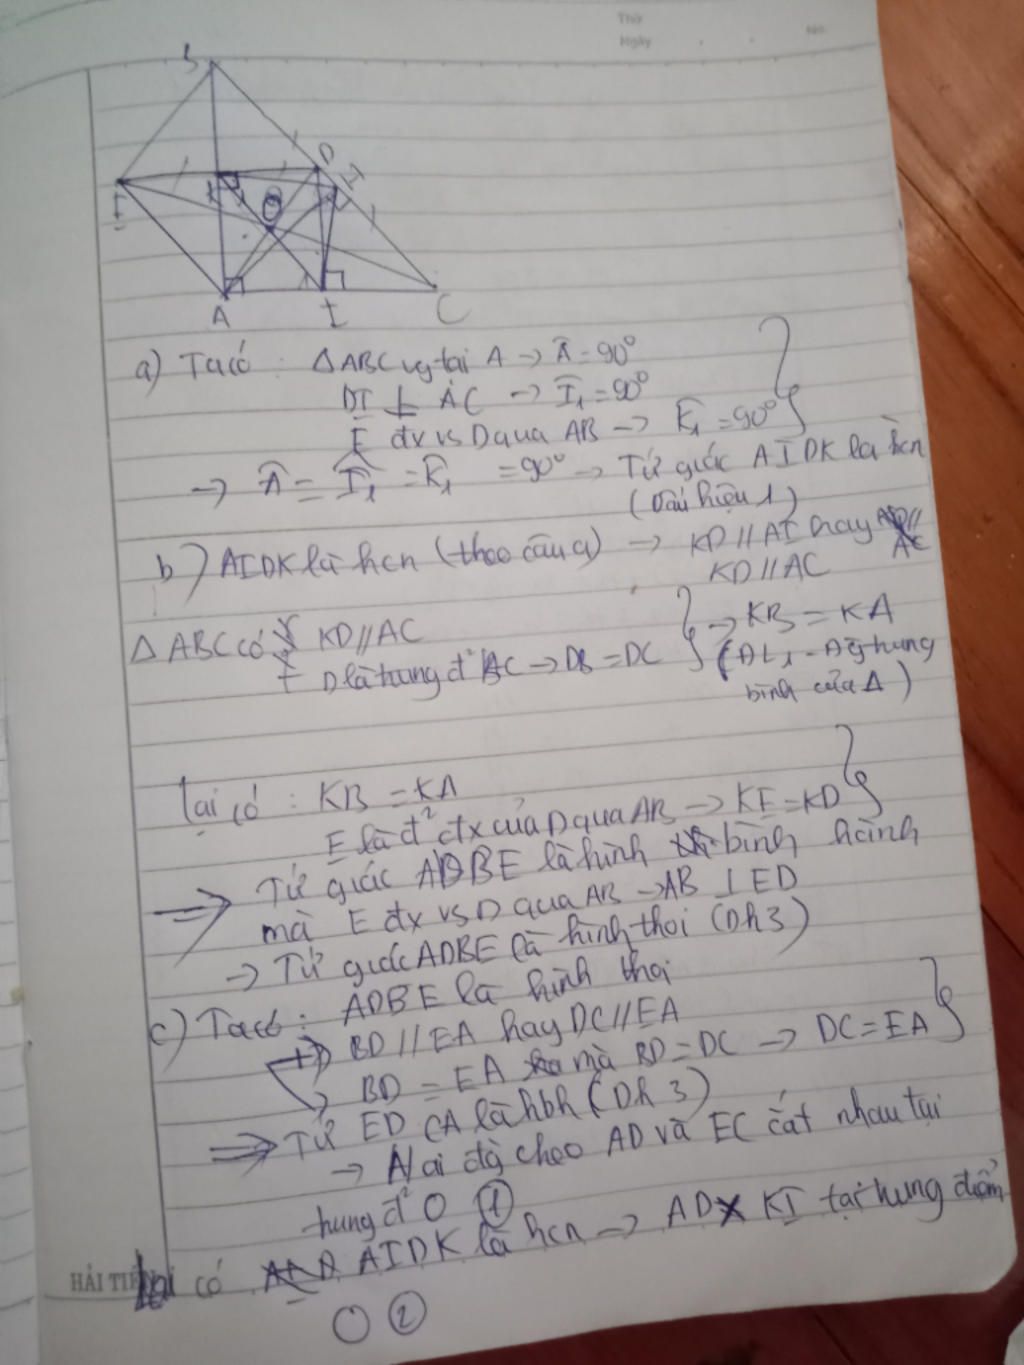 Thứ
Ngày
No.
B
D
E
K
O
J
A
I
C
a) Ta có : ΔABC vg tại A → Â = 90°
DI ⊥ AC → I₁ = 90°
E đx vs D qua AB → K₁ = 90°
→ Â = I₁ = K₁ = 90° → Tứ giác AIDK là hcn
(Dấu hiệu 1)
b) AIDK là hcn (theo câu a) → KD // AI hay
KD // AC
ΔABC có KD // AC
D là trung đ² BC → DB = DC
→ KB = KA
(ĐL1 - Đg trung
bình của Δ)
Lại có : KB = KA
E là đ² đx của D qua AB → KE = KD
⇒ Tứ giác ADBE là hình bình hành
mà E đx vs D qua AB → AB ⊥ ED
→ Tứ giác ADBE là hình thoi (Dh3)
c) Ta có : ADBE là hình thoi
BD // EA hay DC // EA
BD = EA mà BD = DC → DC = EA
⇒ Tứ EDCA là hbh (Dh 3)
→ Hai đg chéo AD và EC cắt nhau tại
trung đ² O ①
Lại có AIDK là hcn → AD X KI tại trung điểm
O ②
HẢI TIẾN